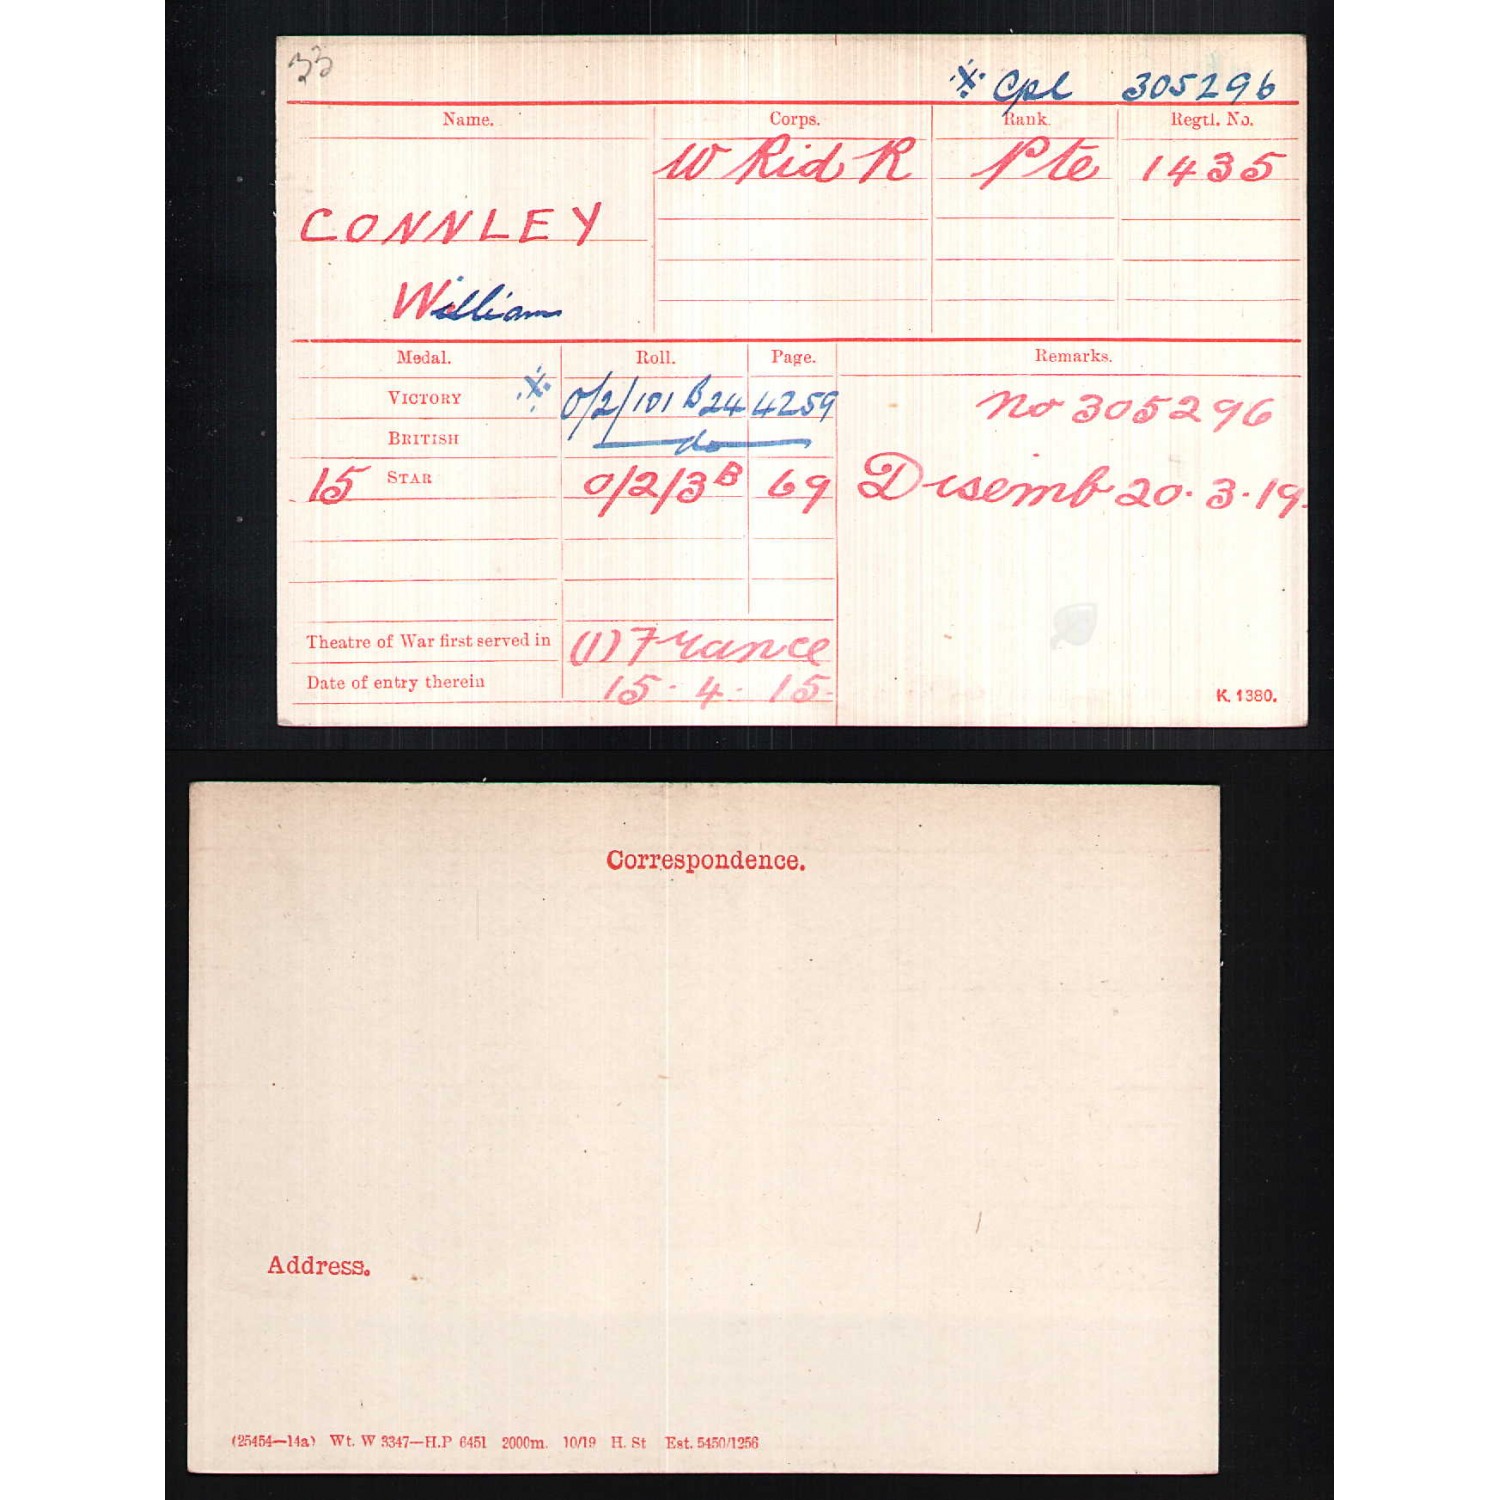 33
※ Cpl 305296
Name. Corps. Rank. Regtl. No.
W Rid R Pte 1435
CONNLEY
William
Medal. Roll. Page. Remarks.
VICTORY ※ O/2/101 B24 4259 No 305296
BRITISH do
15 STAR O/2/3B 69 Disemb 20.3.19.
Theatre of War first served in (1) France
Date of entry therein 15.4.15.
K. 1380.
Correspondence.
Address.
(25454—14a) Wt. W 3347—H.P 6451 2000m. 10/19 H. St Est. 5450/1256